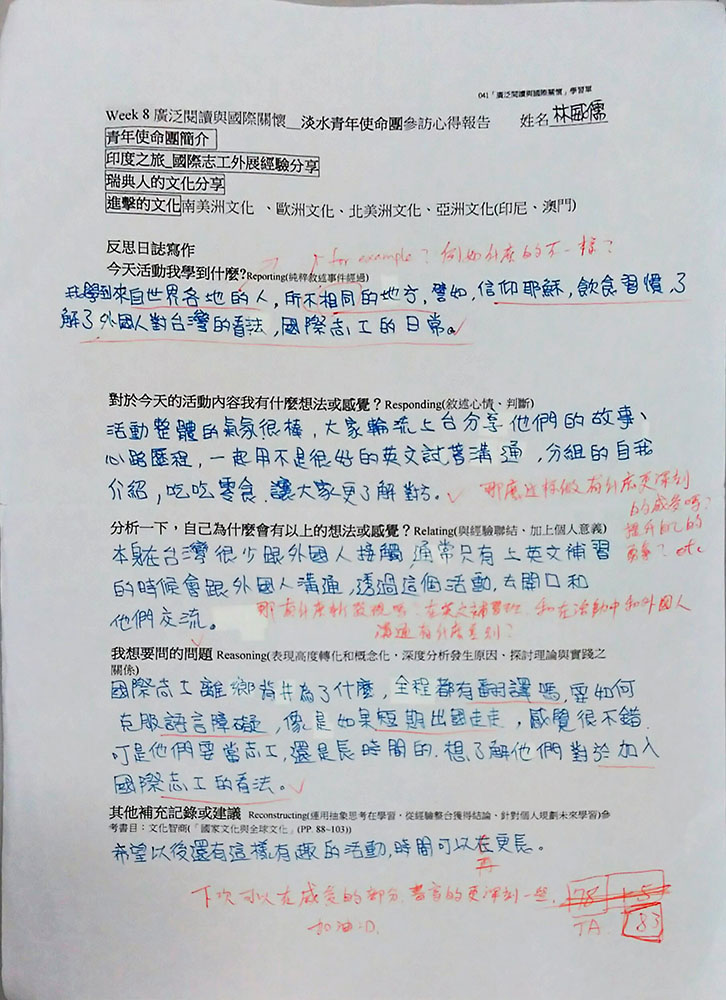 041「廣泛閱讀與國際關懷」學習單
Week 8 廣泛閱讀與國際關懷__淡水青年使命團參訪心得報告 姓名 林威儒
青年使命團簡介
印度之旅_國際志工外展經驗分享
瑞典人的文化分享
進擊的文化南美洲文化 、歐洲文化、北美洲文化、亞洲文化(印尼、澳門)
反思日誌寫作
for example? 例如什麼的不一樣?
今天活動我學到什麼?Reporting(純粹敘述事件經過)
我學到來自世界各地的人，所不相同的地方，譬如，信仰耶穌，飲食習慣，了
解了外國人對台灣的看法，國際志工的日常。
對於今天的活動內容我有什麼想法或感覺？Responding(敘述心情、判斷)
活動整體的氣氛很棒，大家輪流上台分享他們的故事、
心路歷程，一起用不是很好的英文試著溝通，分組的自我
介紹，吃吃零食，讓大家更了解對方。
那麼這樣做有什麼更深刻
的感受嗎?
提升自己的
勇氣? etc
分析一下，自己為什麼會有以上的想法或感覺？Relating(與經驗聯結、加上個人意義)
本身在台灣很少跟外國人接觸，通常只有上英文補習
的時候會跟外國人溝通，透過這個活動，去開口和
他們交流。
那有什麼新發現嗎?在英文補習班和在活動中和外國人
溝通有什麼差別?
我想要問的問題 Reasoning(表現高度轉化和概念化，深度分析發生原因、探討理論與實踐之
關係)
國際志工離鄉背井為了什麼，全程都有翻譯嗎，要如何
克服語言障礙，像是如果短期出國走走，感覺很不錯，
可是他們要當志工，還是長時間的，想了解他們對於加入
國際志工的看法。
其他補充記錄或建議 Reconstructing(運用抽象思考在學習，從經驗整合獲得結論、針對個人規劃未來學習)參
考書目：文化智商(「國家文化與全球文化」(PP. 88~103))
希望以後還有這樣有趣的活動，時間可以在更長。
再
下次可以在感受的部分，書寫的更深刻一些，
加油:D
78 +5
TA 83